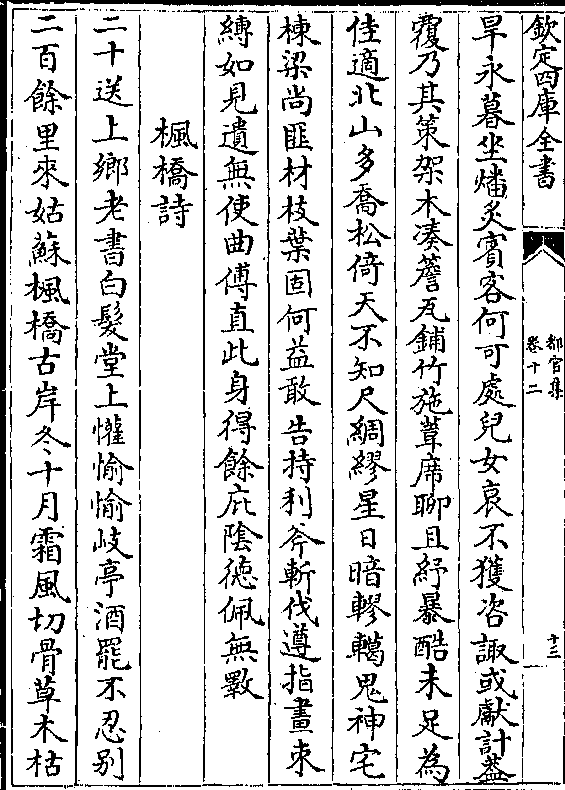 欽定四庫全書
都官集
卷十二
十三
旱永暮坐燔炙賓客何可處兒女哀不獲咨諏或獻計葢
覆乃其策架木湊簷瓦鋪竹施葦席聊且紓暴酷未足為
佳適北山多喬松倚天不知尺綢繆星日暗轇轕鬼神宅
棟梁尚匪材枝葉固何益敢告持利斧斬伐遵指畫束
縛如見遺無使曲傅直此身得餘庇陰徳佩無斁
楓橋詩
二十送上鄉老書白髮堂上懽愉愉岐亭酒罷不忍别
二百餘里來姑蘇楓橋古岸冬十月霜風切骨草木枯